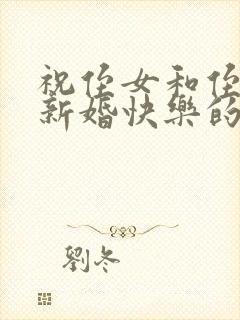 祝侄女和侄
新婚快樂的
劉冬